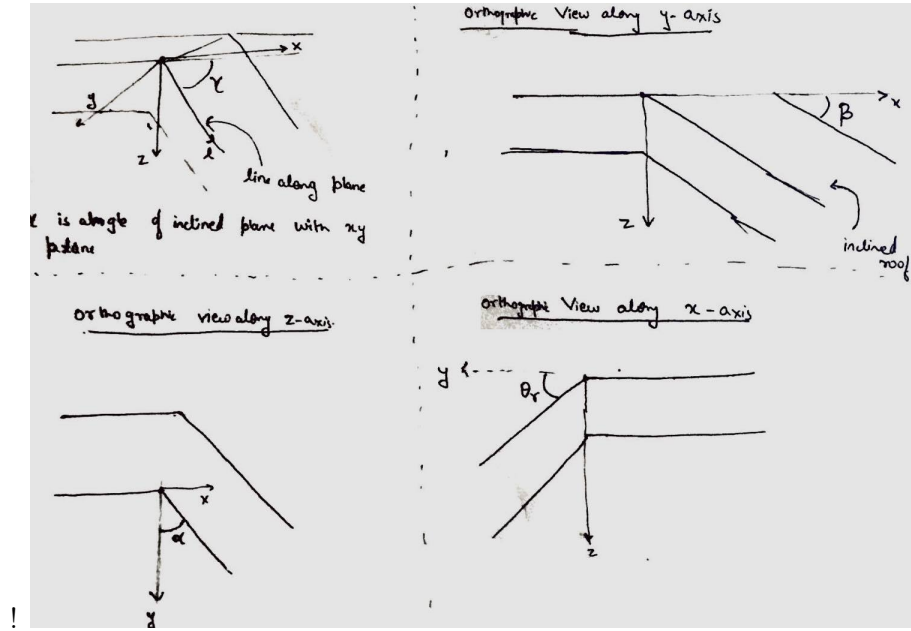 x
γ
y
z
l
line along plane
is abngle of inclined plane with xy
plane
Orthographic View along y-axis
x
β
z
inclined
roof
Orthographic view along z-axis.
x
α
y
Orthographic View along x-axis
y
θr
z
!